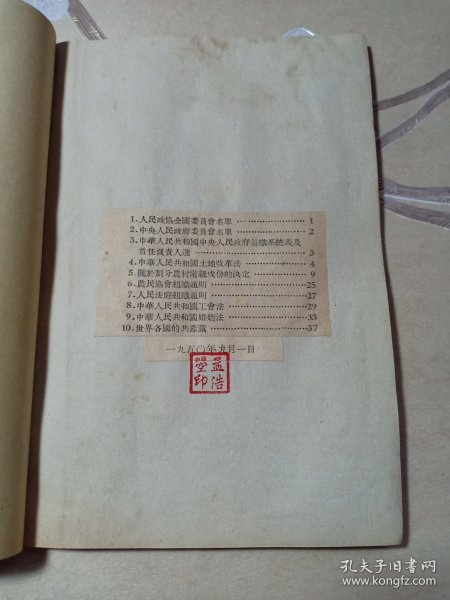 1. 人民政協全國委員會名單 1
2. 中央人民政府委員會名單 2
3. 中華人民共和國中央人民政府組織系統表及
首任負責人選 3
4. 中華人民共和國土地改革法 4
5. 關於劃分農村階級成份的決定 9
6. 農民協會組織通則 25
7. 人民法庭組織通則 27
8. 中華人民共和國工會法 29
9. 中華人民共和國婚姻法 33
10. 世界各國的共產黨 37
一九五〇年九月一日
益浩
墨印
孔夫子旧书网
www.kongfz.com